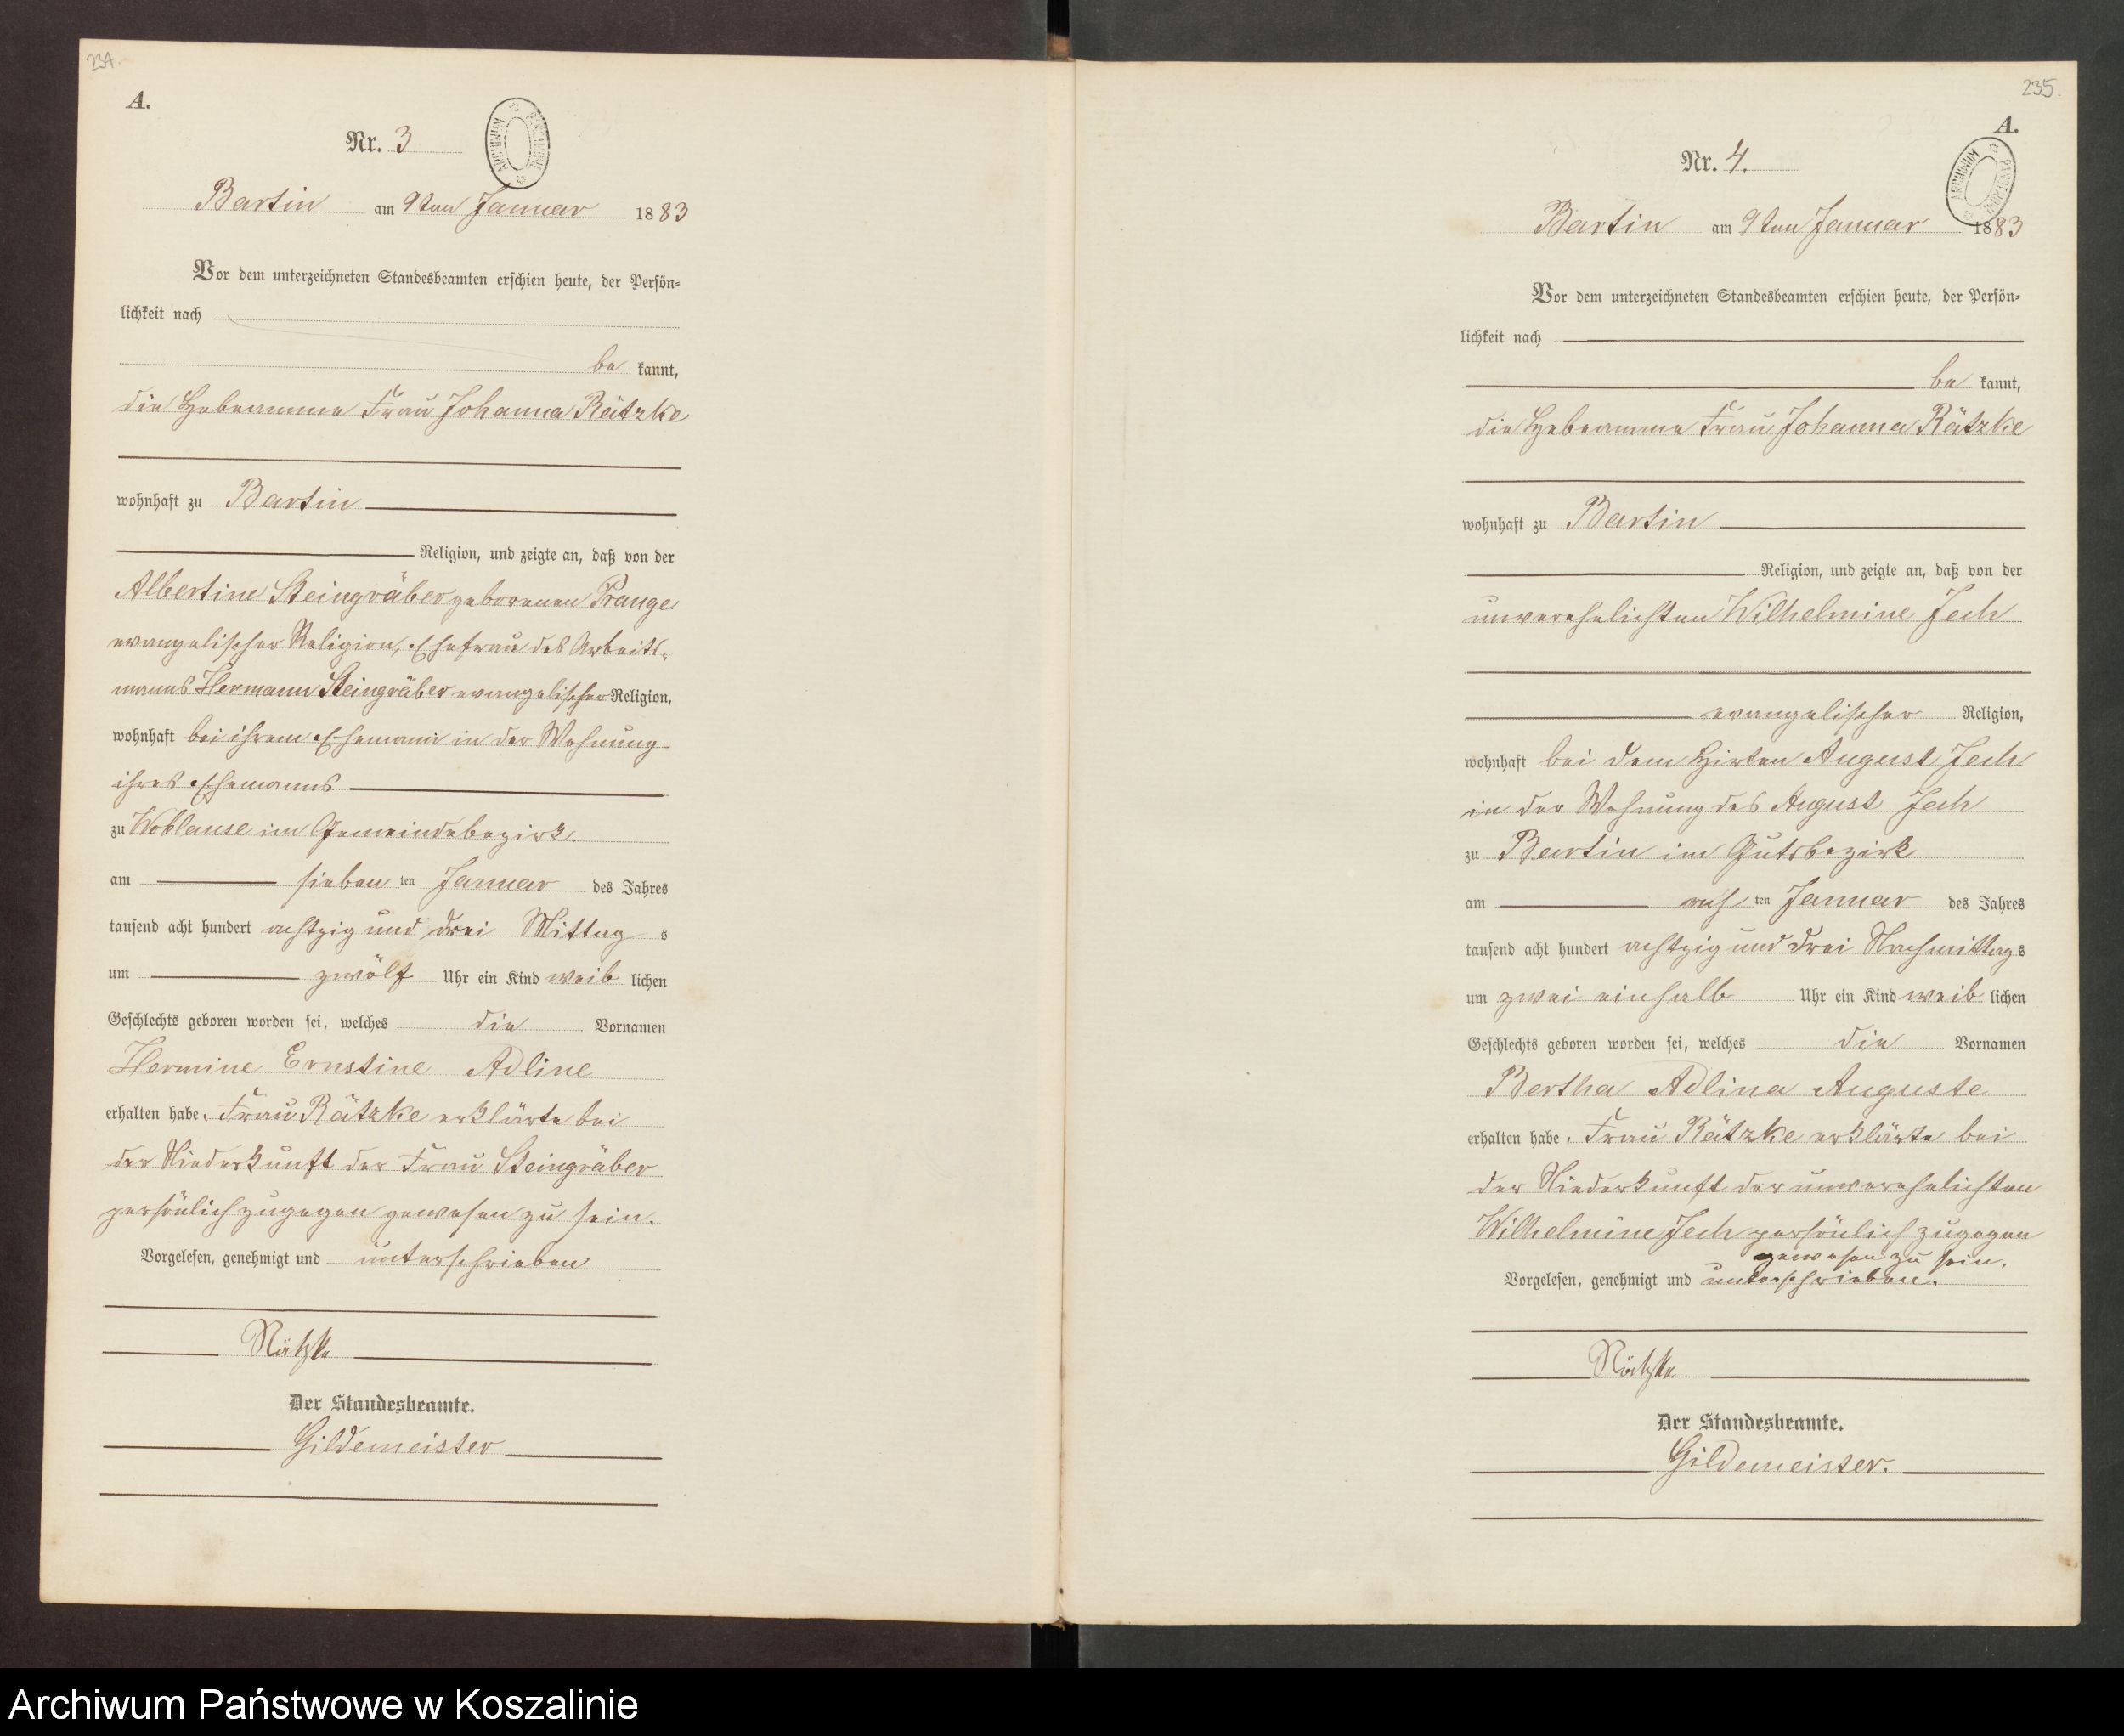 234.
A.
Nr. 3
ARCHIWUM PAŃSTWOWE
Bartin am 9ten Januar 1883
Vor dem unterzeichneten Standesbeamten erschien heute, der Persön=
lichkeit nach
be kannt,
die Hebeamme Frau Johanna Rätzke
wohnhaft zu Bartin
Religion, und zeigte an, daß von der
Albertine Steingräber geborenen Prange
evangelischer Religion, Ehefrau des Arbeits-
manns Hermann Steingräber evangelischer Religion,
wohnhaft bei ihrem Ehemann in der Wohnung
ihres Ehemanns
zu Woblanse im Gemeindebezirk.
am sieben ten Januar des Jahres
tausend acht hundert achtzig und drei Mittag s
um zwölf Uhr ein Kind weib lichen
Geschlechts geboren worden sei, welches die Vornamen
Hermine Ernstine Adline
erhalten habe. Frau Rätzke erklärte bei
der Niederkunft der Frau Steingräber
persönlich zugegen gewesen zu sein.
Vorgelesen, genehmigt und unterschrieben
Rätzke
Der Standesbeamte.
Gildemeister
235.
A.
Nr. 4.
ARCHIWUM PAŃSTWOWE
Bartin am 9ten Januar 1883
Vor dem unterzeichneten Standesbeamten erschien heute, der Persön=
lichkeit nach
be kannt,
die Hebeamme Frau Johanna Rätzke
wohnhaft zu Bartin
Religion, und zeigte an, daß von der
unverehelichten Wilhelmine Jech
evangelischer Religion,
wohnhaft bei dem Hirten August Jech
in der Wohnung des August Jech
zu Bartin im Gutsbezirk
am ach ten Januar des Jahres
tausend acht hundert achtzig und drei Nachmittag s
um zwei einhalb Uhr ein Kind weib lichen
Geschlechts geboren worden sei, welches die Vornamen
Bertha Adlina Auguste
erhalten habe. Frau Rätzke erklärte bei
der Niederkunft der unverehelichten
Wilhelmine Jech persönlich zugegen
gewesen zu sein.
Vorgelesen, genehmigt und unterschrieben.
Rätzke
Der Standesbeamte.
Gildemeister.
Archiwum Państwowe w Koszalinie